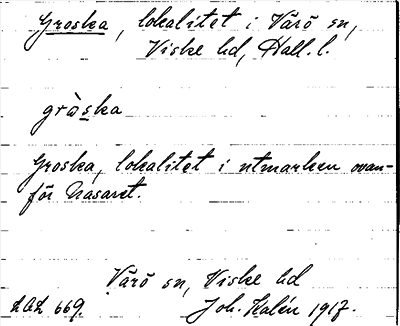 Groska, lokalitet i Värö sn,
Viske hd, Hall. l.
gròska
Groska, lokalitet i utmarken ovan-
för Nasaret.
Värö sn, Viske hd
669. Joh. Kalén 1917.